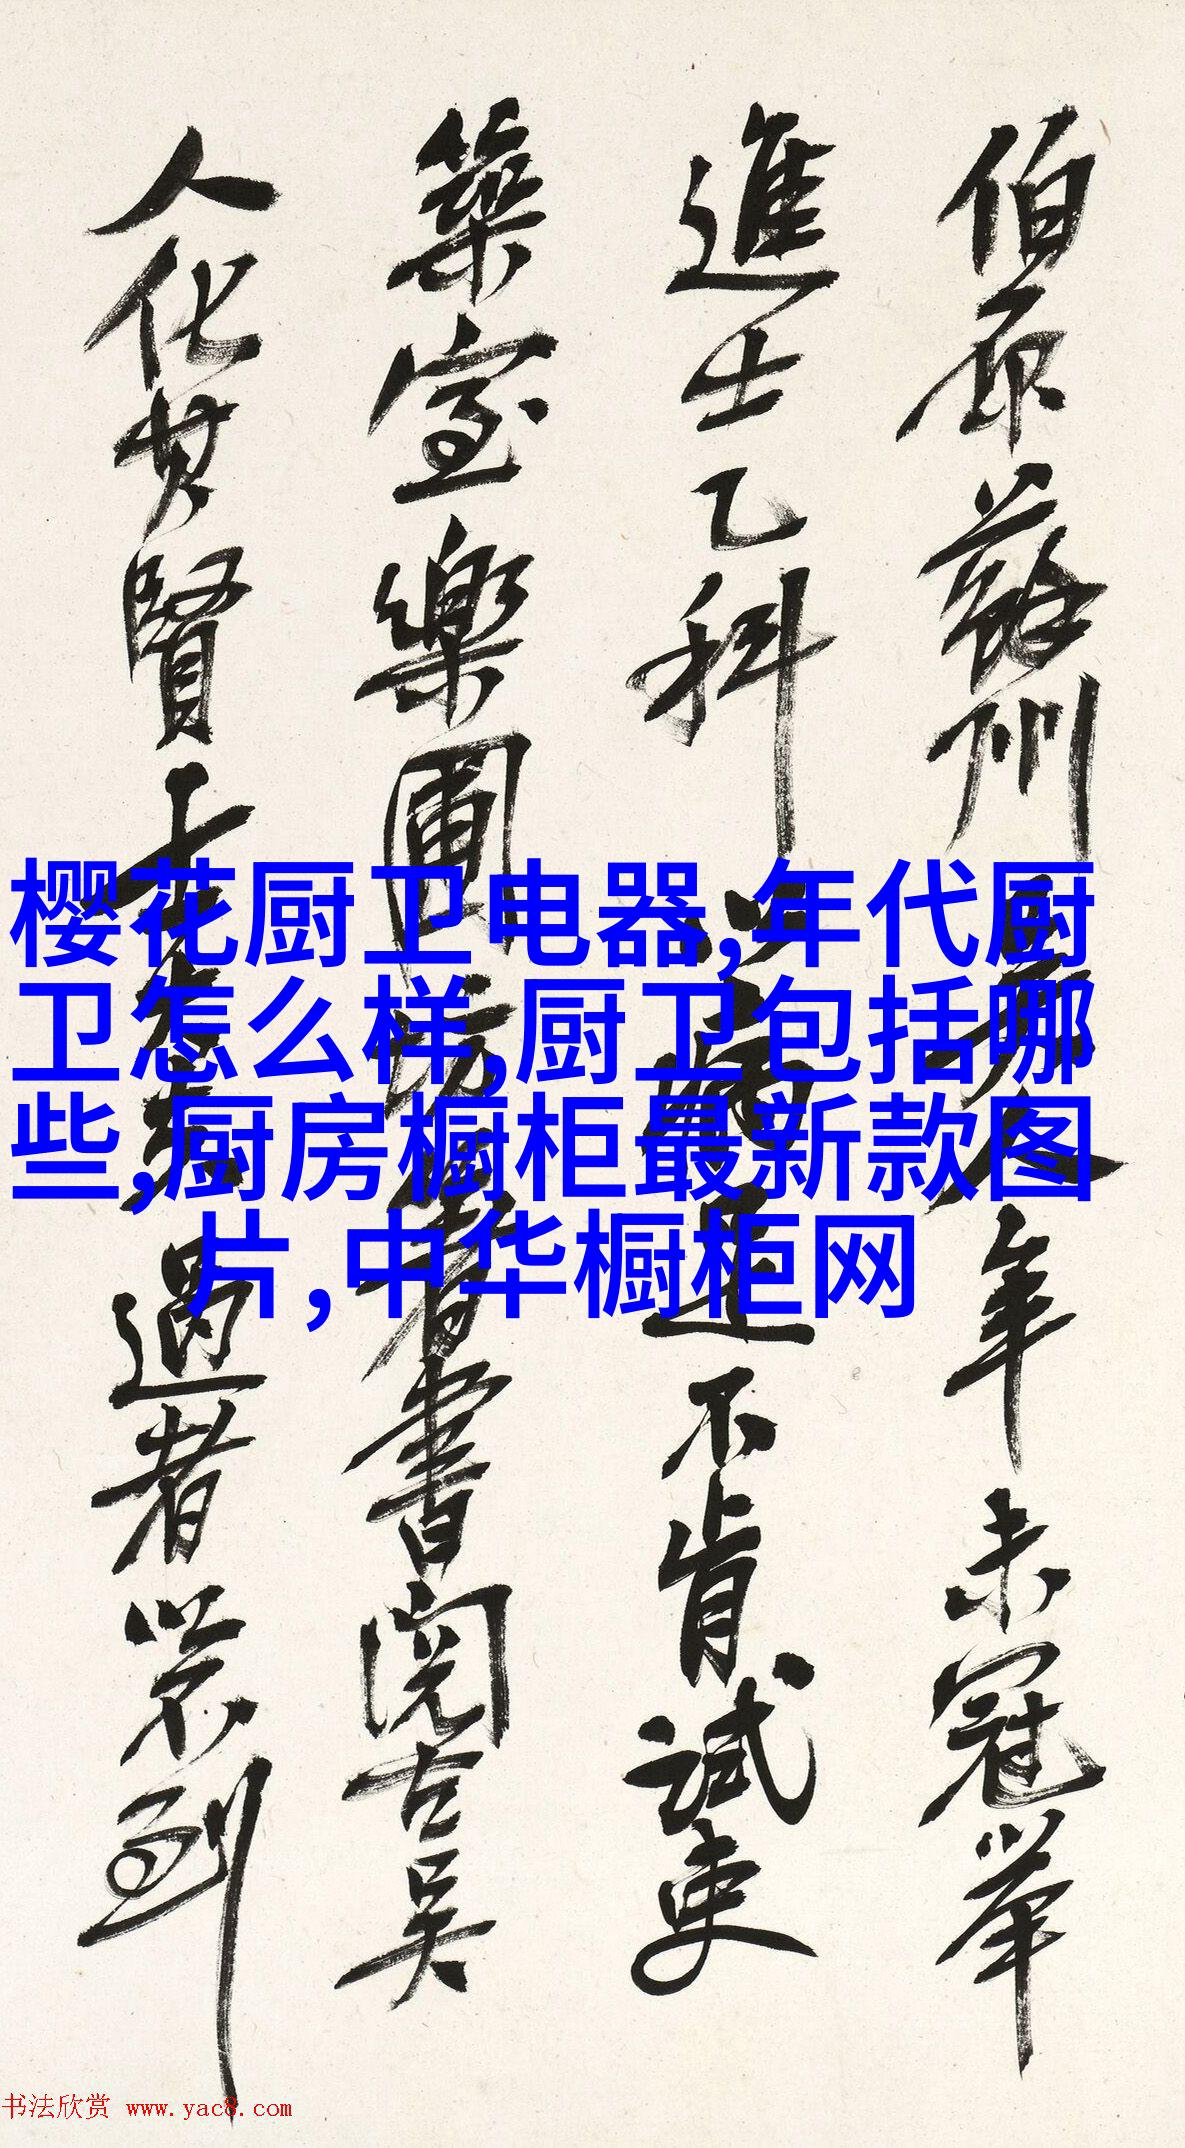 伯原蘇州 年未冠举
進士乙科 不肯試吏
築室樂圃 著書閱古吴
人化其賢 過者以不到
樱花厨卫电器,年代厨
卫怎么样,厨卫包括哪
些,厨房橱柜最新款图
片,中华橱柜网
书法欣赏 www.yac8.com